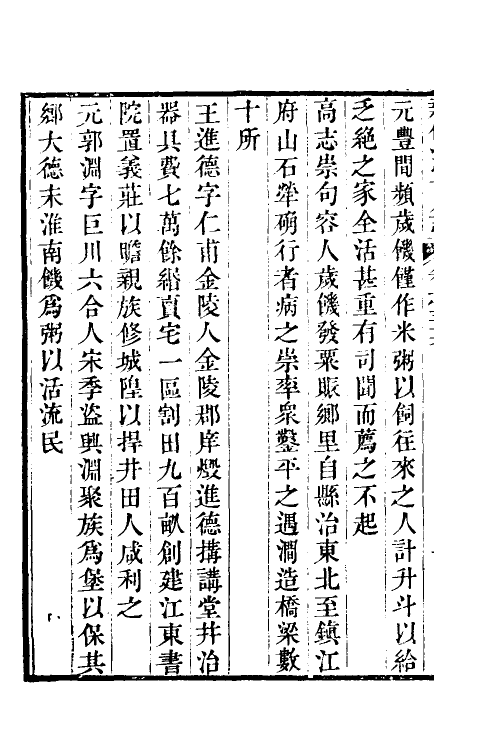 元豐間頻歲饑僅作米粥以飼往來之人計升斗以給
乏絕之家全活甚重有司聞而薦之不起
高志崇句容人歲饑發粟賑鄉里自縣治東北至鎮江
府山石犖确行者病之崇率衆鑿平之遇澗造橋梁數
十所
王進德字仁甫金陵人金陵郡庠燬進德搆講堂幷治
器具費七萬餘緡賣宅一區割田九百畝創建江東書
院置義莊以贍親族修城隍以捍井田人咸利之
元郭淵字巨川六合人宋季盜興淵聚族爲堡以保其
鄉大德末淮南饑爲粥以活流民